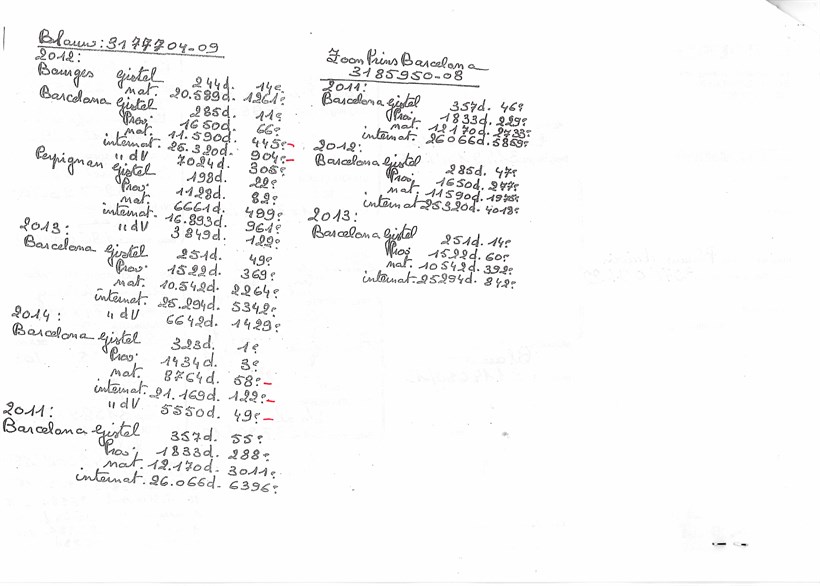 Blauw: 3177704-09
2012:
Bourges Gistel 244d. 14e
nat. 20.589d. 1261e
Barcelona Gistel 285d. 11e
Prov. 1650d. 66e
nat. 11.590d. 445e
internat. 25.320d. 904e
" dV 7024d. 305e
Perpignan Gistel 198d. 22e
Prov. 1128d. 82e
nat. 6661d. 499e
internat. 16.893d. 961e
" dV 3849d. 122e
2013:
Barcelona Gistel 251d. 49e
Prov. 1522d. 369e
nat. 10.542d. 2264e
internat. 25.294d. 5342e
" dV 6642d. 1429e
2014:
Barcelona Gistel 323d. 1e
Prov. 1434d. 3e
nat. 8764d. 58e
internat. 21.169d. 122e
" dV 5550d. 49e
2011:
Barcelona Gistel 357d. 55e
Prov. 1833d. 288e
nat. 12.170d. 3011e
internat. 26.066d. 6396e
Zoon Prins Barcelona
3185950-08
2011:
Barcelona Gistel 357d. 46e
Prov. 1833d. 229e
nat. 12170d. 2733e
internat. 26066d. 5859e
2012:
Barcelona Gistel 285d. 47e
Prov. 1650d. 277e
nat. 11590d. 1975e
internat 25320d. 4018e
2013:
Barcelona Gistel 251d. 14e
Prov. 1522d. 60e
nat. 10542d. 392e
internat. 25294d. 842e